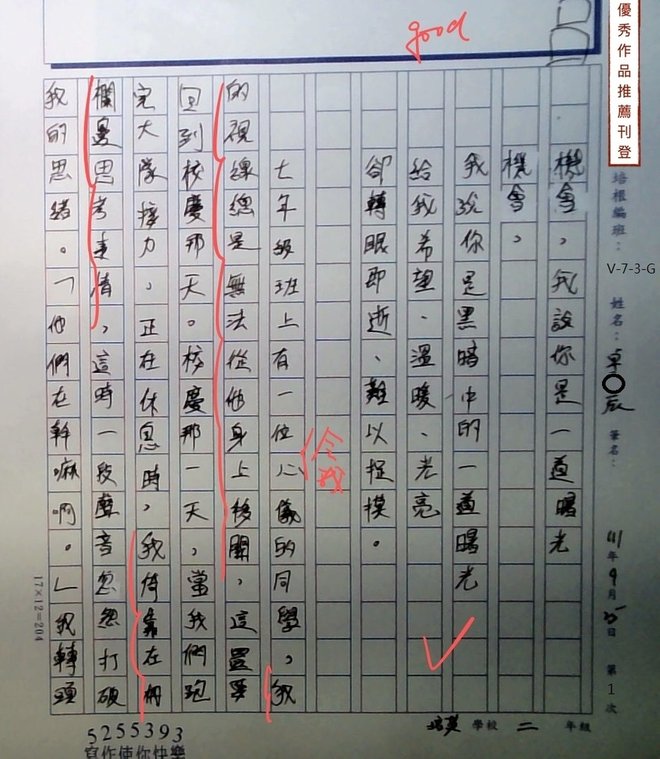 優秀作品推薦刊登
培根編班： V-7-3-G 姓名：卓○辰 筆名： 111年9月25日 第1次
培英 學校 二 年級
good
機會，我說你是一道曙光
機會，
我說你是黑暗中的一道曙光
給我希望、溫暖、光亮
卻轉眼即逝、難以捉摸。
令我
七年級班上有一位心儀的同學，我
的視線總是無法從他身上移開，這還要
回到校慶那天。校慶那一天，當我們跑
完大隊接力，正在休息時，我倚靠在柵
欄邊思考事情，這時一段聲音忽忽打破
我的思緒。「他們在幹嘛啊。」我轉頭
17×12=204
5255393
寫作使你快樂